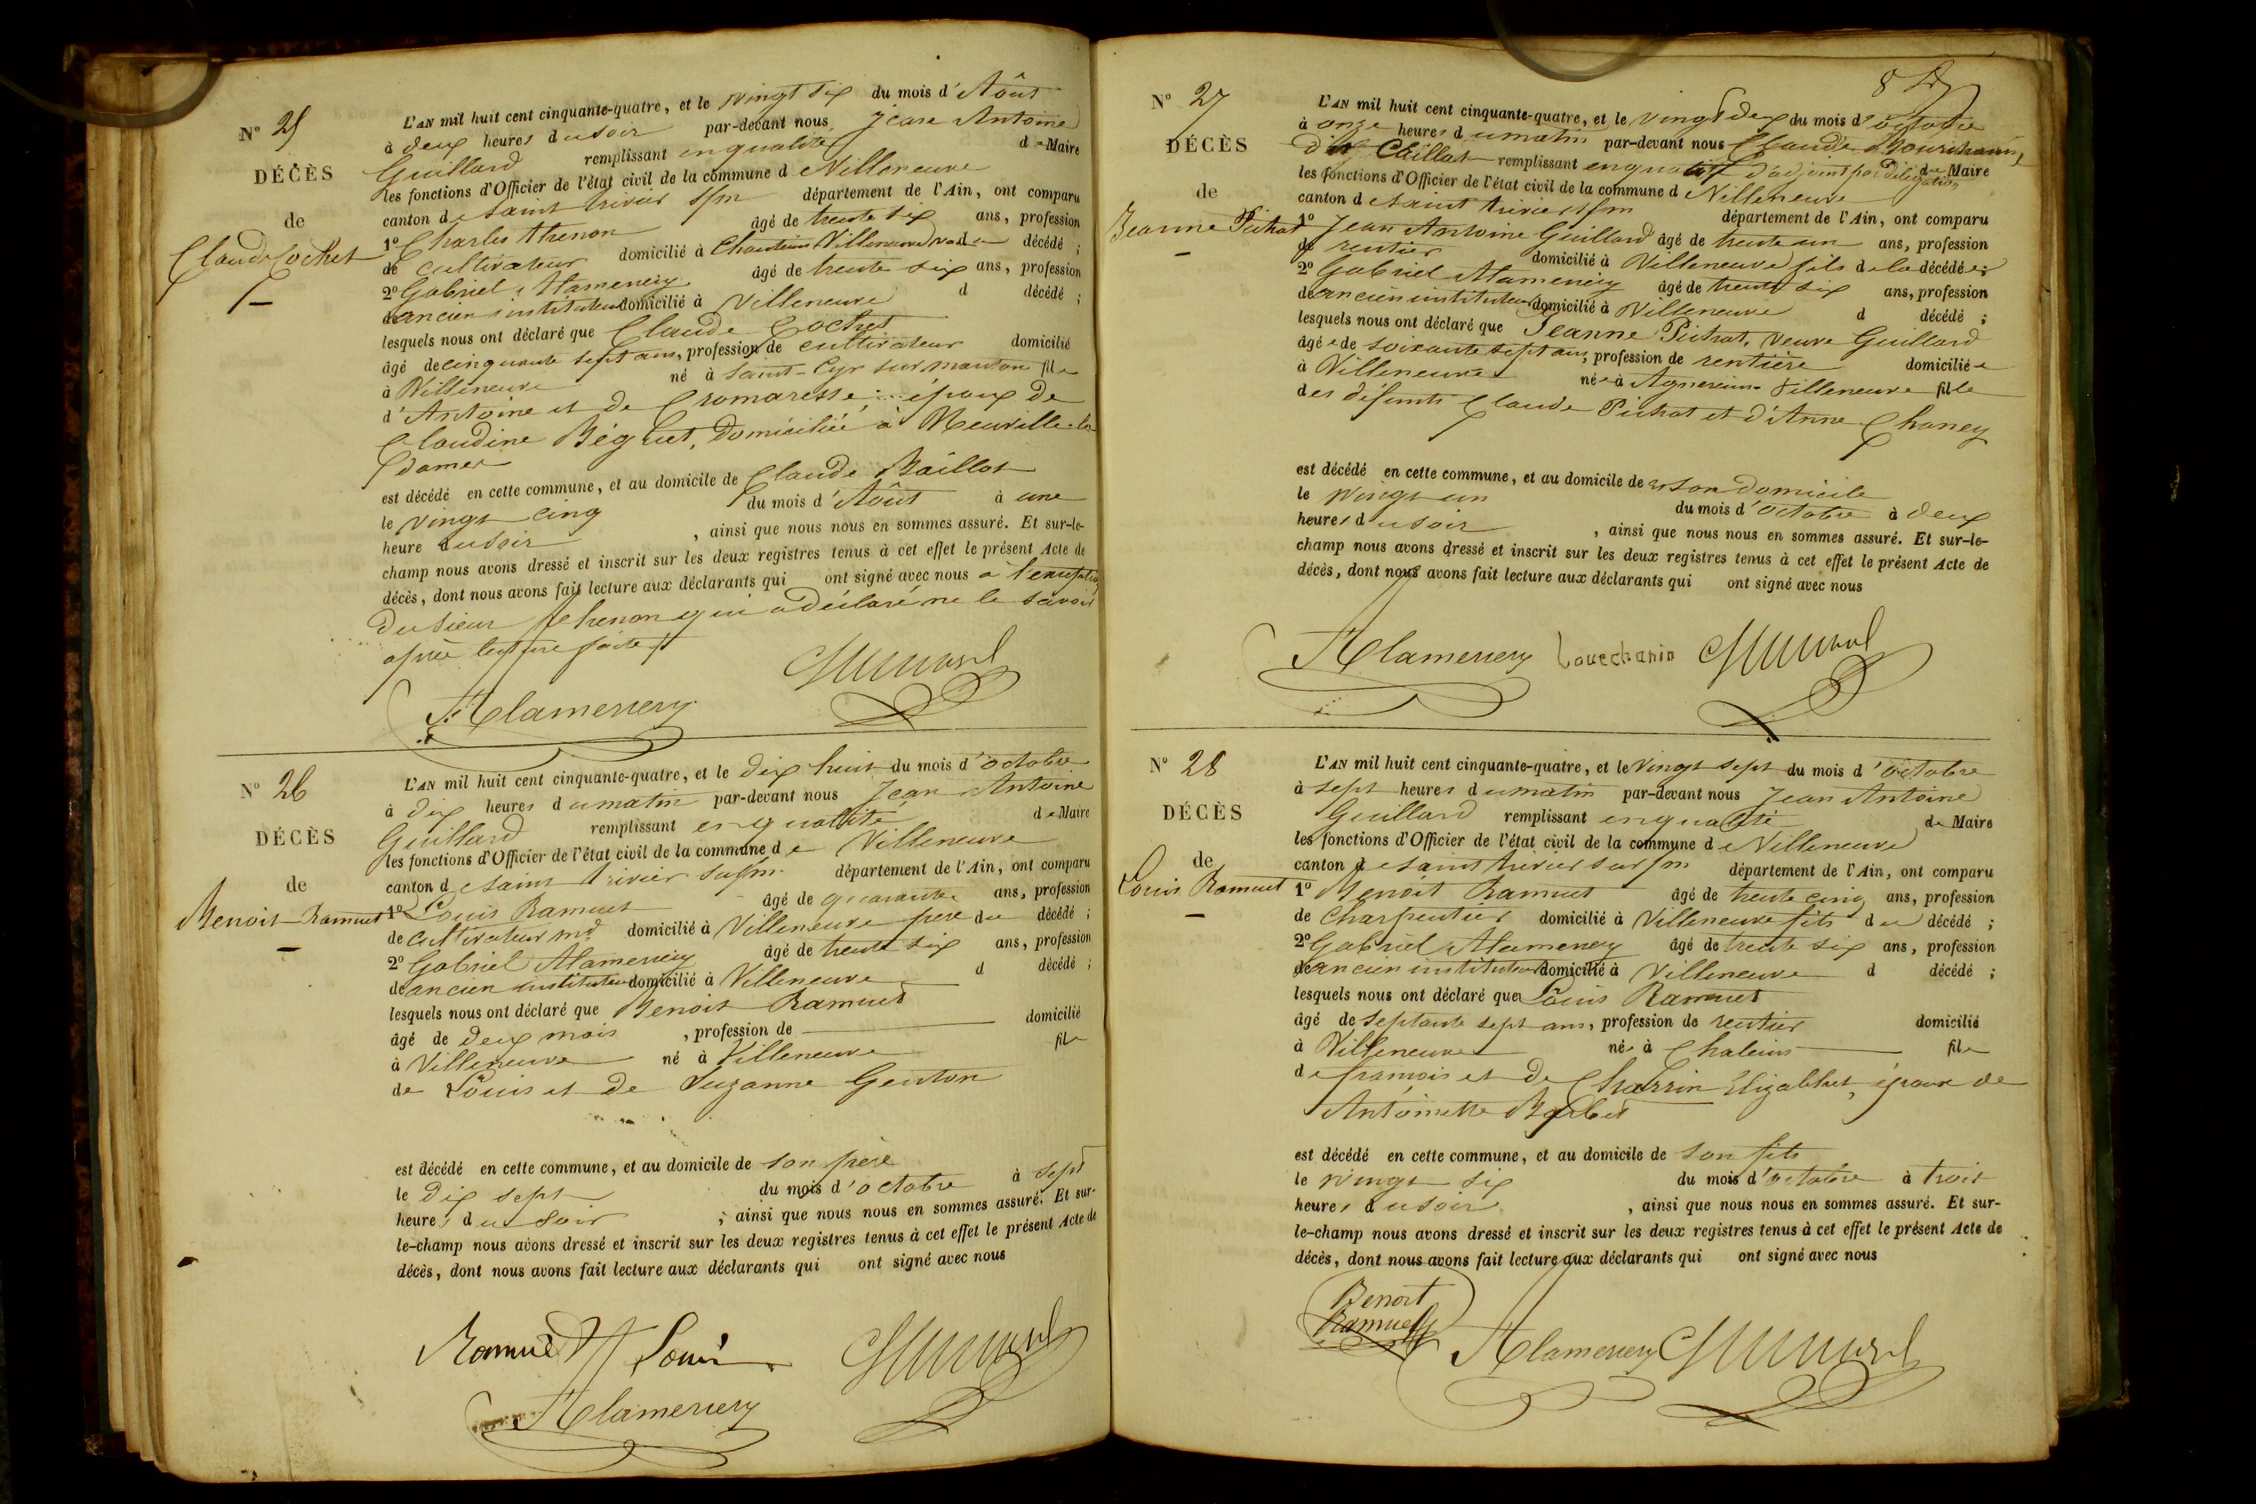 N° 25
DÉCÈS
de
Claude Cochet
L'AN mil huit cent cinquante-quatre, et le vingt six du mois d'Août
à deux heures du soir par-devant nous Jean Antoine
Guillard remplissant en qualité de Maire
les fonctions d'Officier de l'état civil de la commune de Villeneuve
canton de Saint Trivier s/m département de l'Ain, ont comparu
1° Charles Thenon âgé de trente six ans, profession
de cultivateur domicilié à Villeneuve du décédé ;
2° Gabriel Alamercery âgé de trente six ans, profession
de ancien instituteur domicilié à Villeneuve d décédé ;
lesquels nous ont déclaré que Claude Cochet
âgé de cinquante sept ans, profession de cultivateur domicilié
à Villeneuve né à Saint-Cyr sur manton fils
d'Antoine et de Cromaresse époux de
Claudine Béguet, domiciliée à Neuville-les
dames
est décédé en cette commune, et au domicile de Claude Baillot
le vingt cinq du mois d'Août à une
heure du soir, ainsi que nous nous en sommes assuré. Et sur-le-
champ nous avons dressé et inscrit sur les deux registres tenus à cet effet le présent Acte de
décès, dont nous avons fait lecture aux déclarants qui ont signé avec nous à l'exception
du sieur Thenon qui a déclaré ne le savoir
après lecture faite
Alamercery
N° 26
DÉCÈS
de
Benoit Ramuet
L'AN mil huit cent cinquante-quatre, et le dix huit du mois d'octobre
à dix heures du matin par-devant nous Jean Antoine
Guillard remplissant en qualité de Maire
les fonctions d'Officier de l'état civil de la commune de Villeneuve
canton de Saint Trivier sur/m département de l'Ain, ont comparu
1° Louis Ramuet âgé de quarante ans, profession
de cultivateur md domicilié à Villeneuve père du décédé ;
2° Gabriel Alamercery âgé de trente six ans, profession
de ancien instituteur domicilié à Villeneuve d décédé ;
lesquels nous ont déclaré que Benoit Ramuet
âgé de deux mois, profession de domicilié
à Villeneuve né à Villeneuve fils
de Louis et de Suzanne Genton
est décédé en cette commune, et au domicile de son père
le dix sept du mois d'octobre à sept
heures du soir, ainsi que nous nous en sommes assuré. Et sur-
le-champ nous avons dressé et inscrit sur les deux registres tenus à cet effet le présent Acte de
décès, dont nous avons fait lecture aux déclarants qui ont signé avec nous
Ramuet Louis
Alamercery
N° 27
DÉCÈS
de
Jeanne Pichat
L'AN mil huit cent cinquante-quatre, et le vingt deux du mois d'octobre
à onze heures du matin par-devant nous Claude Bourchanin,
dit Caillat remplissant en qualité d'adjoint par délégation de Maire
les fonctions d'Officier de l'état civil de la commune d Villeneuve
canton de Saint Trivier s/m département de l'Ain, ont comparu
1° Jean Antoine Guillard âgé de trente un ans, profession
de rentier domicilié à Villeneuve fils de la décédée ;
2° Gabriel Alamercery âgé de trente six ans, profession
de ancien instituteur domicilié à Villeneuve d décédé ;
lesquels nous ont déclaré que Jeanne Pichat, veuve Guillard
âgée de soixante sept ans, profession de rentière domiciliée
à Villeneuve née à Agnereins Villeneuve fille
des défunts Claude Pichat et d'Anne Chaney
est décédé en cette commune, et au domicile de son domicile
le vingt un du mois d'octobre à deux
heures du soir, ainsi que nous nous en sommes assuré. Et sur-le-
champ nous avons dressé et inscrit sur les deux registres tenus à cet effet le présent Acte de
décès, dont nous avons fait lecture aux déclarants qui ont signé avec nous
Alamercery
N° 28
DÉCÈS
de
Louis Ramuet
L'AN mil huit cent cinquante-quatre, et le vingt sept du mois d'octobre
à sept heures du matin par-devant nous Jean Antoine
Guillard remplissant en qualité de Maire
les fonctions d'Officier de l'état civil de la commune de Villeneuve
canton de Saint Trivier sur/m département de l'Ain, ont comparu
1° Benoit Ramuet âgé de trente cinq ans, profession
de Charpentier domicilié à Villeneuve fils du décédé ;
2° Gabriel Alamercery âgé de trente six ans, profession
de ancien instituteur domicilié à Villeneuve d décédé ;
lesquels nous ont déclaré que Louis Ramuet
âgé de septante sept ans, profession de rentier domicilié
à Villeneuve né à Chaleins fils
de françois et de Charrin Elizabhet, époux de
Antoinette Barbet
est décédé en cette commune, et au domicile de son fils
le vingt six du mois d'octobre à trois
heures du soir, ainsi que nous nous en sommes assuré. Et sur-
le-champ nous avons dressé et inscrit sur les deux registres tenus à cet effet le présent Acte de
décès, dont nous avons fait lecture aux déclarants qui ont signé avec nous
Benoit
Ramuet
Alamercery